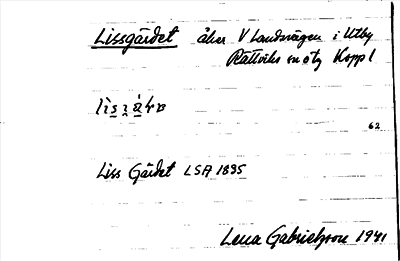 Lissgärdet åker V Landsvägen i Utby
Rättviks sn o tg Koppl
62
Liss Gärdet LSA 1895
Lena Gabrielsson 1941